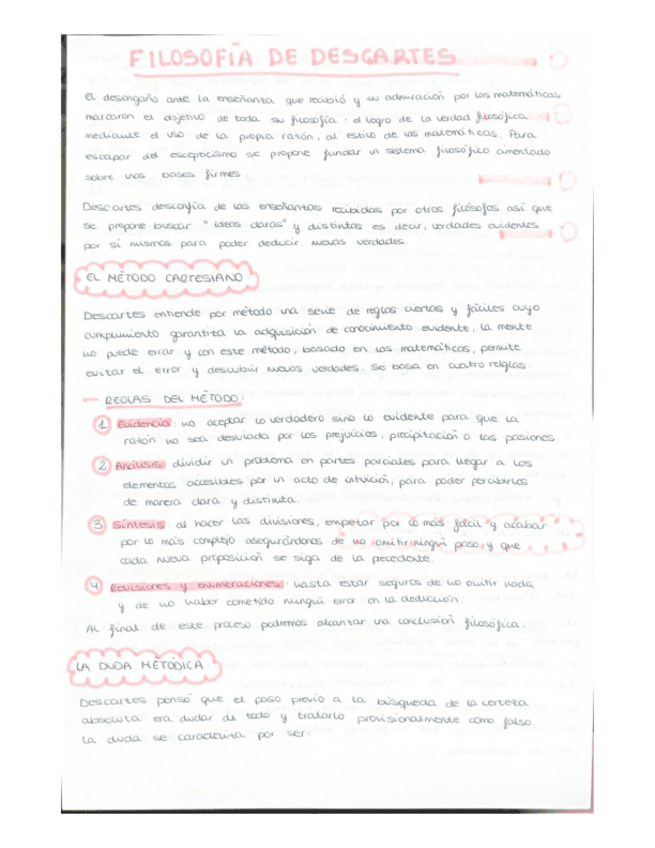 FILOSOFÍA DE DESCARTES
El desengaño ante la enseñanza que recibió y su admiración por las matemáticas
marcaron el objetivo de toda su filosofía: el logro de la verdad filosófica
mediante el uso de la propia razón, al estilo de las matemáticas. Para
escapar del escepticismo se propone fundar un sistema filosófico cimentado
sobre unas bases firmes
Descartes desconfía de las enseñanzas recibidas por otros filósofos así que
se propone buscar "ideas claras" y distintas es decir, verdades evidentes
por sí mismas para poder deducir nuevas verdades.
EL MÉTODO CARTESIANO:
Descartes entiende por método una serie de reglas ciertas y fáciles cuyo
cumplimiento garantiza la adquisición de conocimiento evidente, la mente
no puede errar y con este método, basado en las matemáticas, permite
evitar el error y descubrir nuevas verdades. Se basa en cuatro relglas:
— REGLAS DEL MÉTODO:
1 Evidencia: no aceptar lo verdadero sino lo evidente para que la
razón no sea desviada por los prejuicios, precipitación o las pasiones
2 Análisis: dividir un problema en partes parciales para llegar a los
elementos accesibles por un acto de intuición, para poder percibirlos
de manera clara y distinta.
3 Síntesis: al hacer las divisiones, empezar por lo más fácil y acabar
por lo más complejo asegurándonos de no omitir ningú paso y que
cada nueva proposición se siga de la precedente.
4 Revisiones y enumeraciones: hasta estar seguros de no omitir nada
y de no haber cometido ningú error en la deducción.
Al final de este proceso podremos alcanzar una conclusión filosófica.
LA DUDA METÓDICA:
Descartes pensó que el paso previo a la búsqueda de la certeza
absoluta era dudar de todo y tratarlo provisionalmente como falso.
La duda se caracteriza por ser: